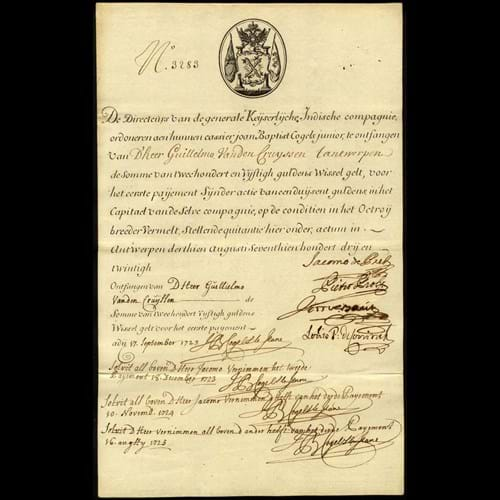 N.º 3283
De Directeurs van de generale Keÿserlÿcke Indische compagnie,
ordoneren aen hunnen cassier joan Baptist Cogels junior, te ontfangen
van D'heer Guillelmo Vanden Cruyssen t'antwerpen
de Somme van tweehondert en Vÿftigh guldens Wissel gelt, voor
het eerste paÿement Sÿnder actie van een duÿsent guldens, in het
Capitael van de Selve compagnie, op de conditien in het Octroÿ
breeder Vermelt, Stellende quitantie hier onder, actum in
Antwerpen derthien Augusti Seventhien hondert drÿ en
twintigh
Jacomo de Pret
Pietro Proli
Ontfangen van D Heer Guillielmo
Vanden Cruyssen de
Somme van tweehondert Vÿftigh guldens
Wissel gelt voor het eerste payement
adij 17. September 1723 JB Cogels de Jeune
Solvit als boven D Heer Jacomo Vernimmen het twede
Payement 18. December 1723 JB Cogels de Jeune
Solvit als boven D Heer Jacomo Vernimmen d'helft van het derde Payement
10. Novemb. 1724 JB Cogels de Jeune
Solvit D Heer Vernimmen als boven d'ander helft van het derde Payement
16. aug 1725 JB Cogels de Jeune